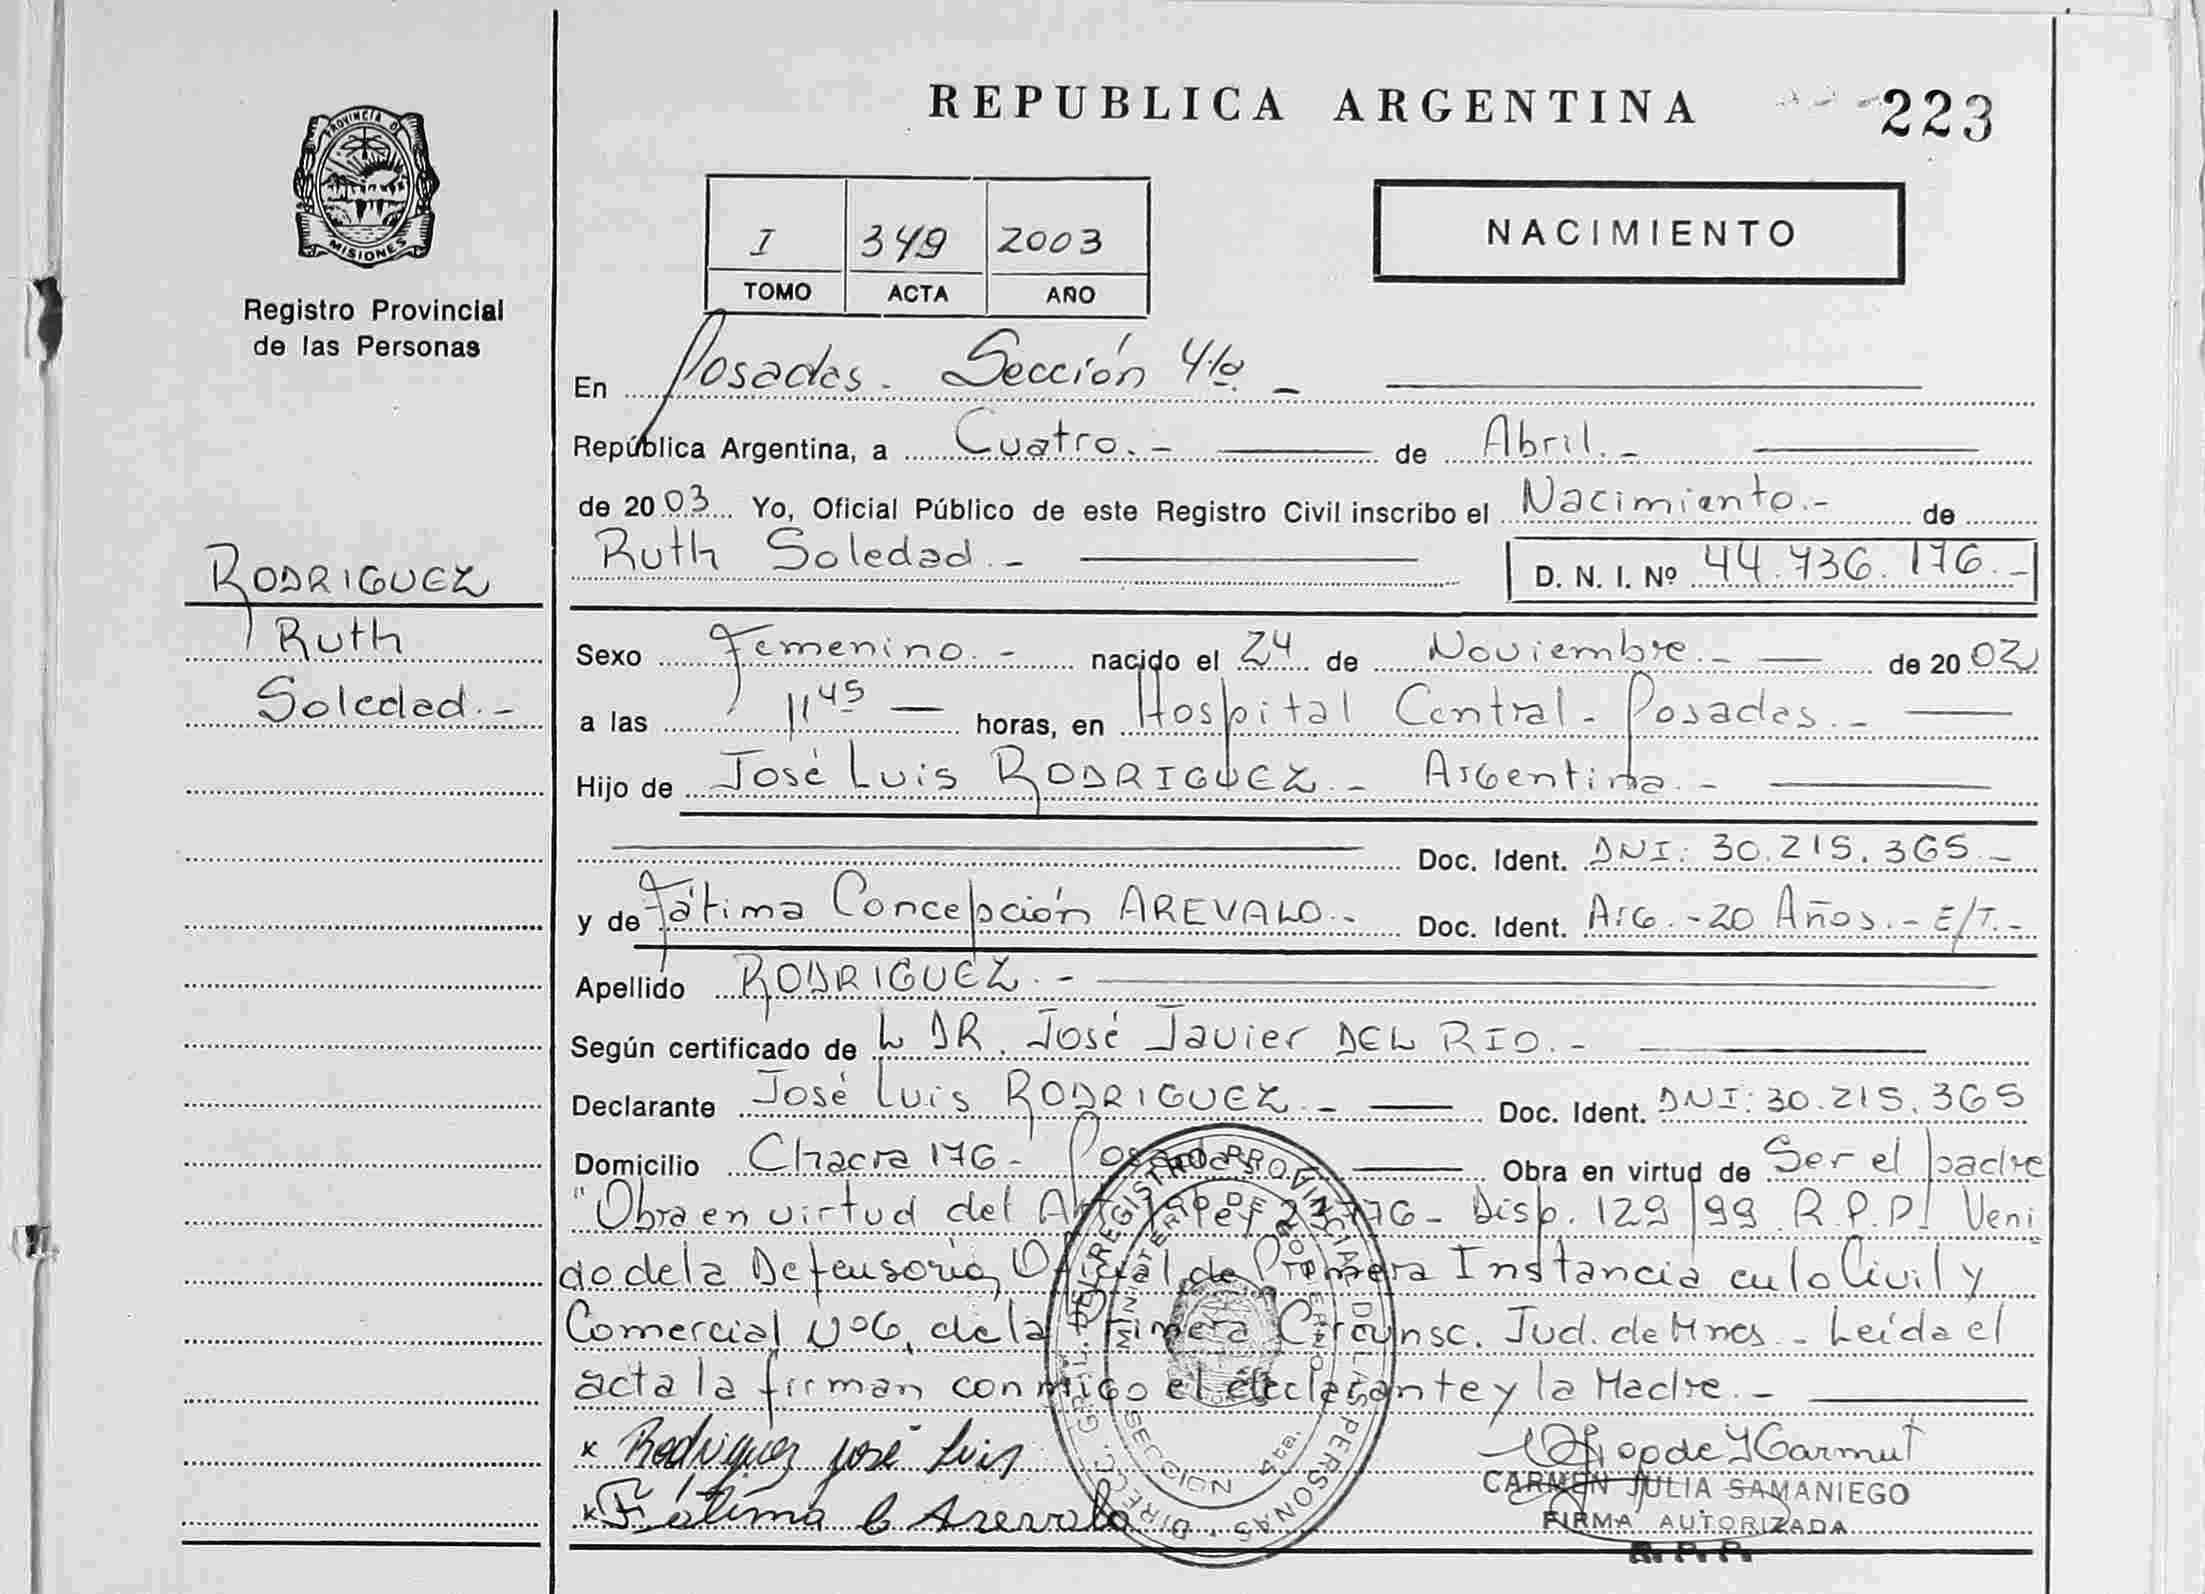 REPUBLICA ARGENTINA 223
PROVINCIA DE
MISIONES
Registro Provincial
de las Personas
I 349 2003
TOMO ACTA AÑO
NACIMIENTO
En Posadas. Sección 4ta. -
República Argentina, a Cuatro. - de Abril. -
de 2003 Yo, Oficial Público de este Registro Civil inscribo el Nacimiento. - de
Ruth Soledad. - D. N. I. Nº 44.736.176. -
RODRIGUEZ
Ruth
Soledad. -
Sexo Femenino. - nacido el 24 de Noviembre. - de 2002
a las 11 45 horas, en Hospital Central - Posadas. -
Hijo de José Luis RODRIGUEZ. - Argentina. -
Doc. Ident. DNI: 30.215.365. -
y de Fátima Concepción AREVALO. - Doc. Ident. Arg. - 20 Años. - E/T. -
Apellido RODRIGUEZ. -
Según certificado de L DR. José Javier DEL RIO. -
Declarante José Luis RODRIGUEZ. - Doc. Ident. DNI: 30.215.365
Domicilio Chacra 176 - Posadas Obra en virtud de Ser el padre
"Obra en virtud del Ley - Disp. 129/99 R.P.P. Veni
do de la Defensoria Oficial de Primera Instancia en lo Civil y
Comercial Nº6, de la Primera Circunsc. Jud. de Mnes. - Leída el
acta la firman conmigo el declarante y la Madre. -
x Rodriguez José Luis
x Fátima C Arevalo
DIRECC. GRAL. DEL REGISTRO PROVINCIAL DE LAS PERSONAS
MINISTERIO DE GOBIERNO
SECCION 4ta.
CARMEN JULIA SAMANIEGO
FIRMA AUTORIZADA
R. P. P.